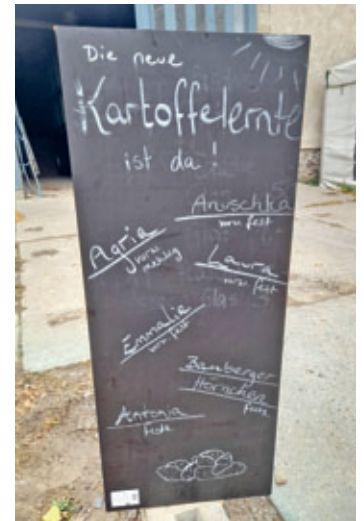 Die neue
Kartoffelernte
ist da!
Anuschka
vorw. fest
Agria
vorw.
mehlig
Laura
vorw. fest
Emmalie
vorw. fest
Bamberger
Hörnchen
fest
Antonia
fest